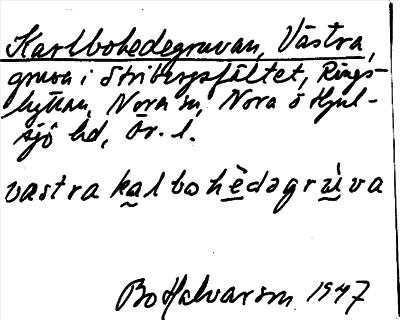 Karlbohedegruvan, Västra,
gruva i Stribergsfältet, Rings-
hyttan, Nora sn, Nora o Hjul-
sjö bd, Ör. l.
vastra kalbohèdəgrùva
Bo Halvarson 1947